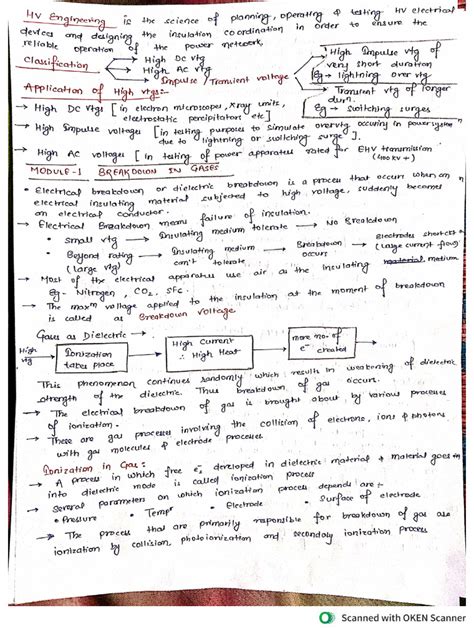 HV Engineering is the science of planning, operating & testing HV electrical
devices and designing the insulation co ordination in order to ensure the
reliable operation of the power network.
Classification → High DC vtg
→ High AC vtg
→ Impulse / Transient voltage
→ High Impulse vtg of
very short duration
Eg → lightning over vtg
→ Transient vtg of longer
durn.
Eg → Switching surges
Application of High vtgs:-
→ High DC vtgs [in electron microscopes, Xray units,
electrostatic percipitators etc]
→ High Impulse voltages [in testing purposes to simulate overvtg occuring in power system
due to lightning or switching surge].
→ High AC voltages [in testing of power apparatus rated for EHV transmission
(400 KV +)
MODULE-1 BREAKDOWN IN GASES
• Electrical breakdown or dielectric breakdown is a process that occurs when an
electrical insulating material subjected to high voltage, suddenly becomes
an electrical conductor.
→ Electrical Breakdown means failure of insulation.
• small vtg → Insulating medium tolerate → No Breakdown
• Beyond rating → Insulating medium → Breakdown → Electrodes short ckt
(large vtg) can't tolerate occurs (large current flow)
→ Most of the electrical apparatus use air as the insulating medium
Eg- Nitrogen, CO2, SF6
→ The maxm voltage applied to the insulation at the moment of breakdown
is called as Breakdown voltage
Gases as Dielectric →
High vtg → Ionization takes place → High Current ∴ High Heat → more no. of e- created
This phenomenon continues randomly which results in weakening of dielectric
strength of the dielectric. Thus breakdown of gas occurs.
→ The electrical breakdown of gas is brought about by various processes
of ionization.
→ These are gas processes involving the collision of electrons, ions & photons
with gas molecules & electrode processes
Ionization in Gas:
→ A process in which free e- developed in dielectric material & material goes in
into dielectric mode is called ionization process
→ Several parameters on which ionization process depends are :-
• Pressure • Temp • Electrode • Surface of electrode
→ The process that are primarily responsible for breakdown of gas are
ionization by collision, photoionization and secondary ionization process
Scanned with OKEN Scanner